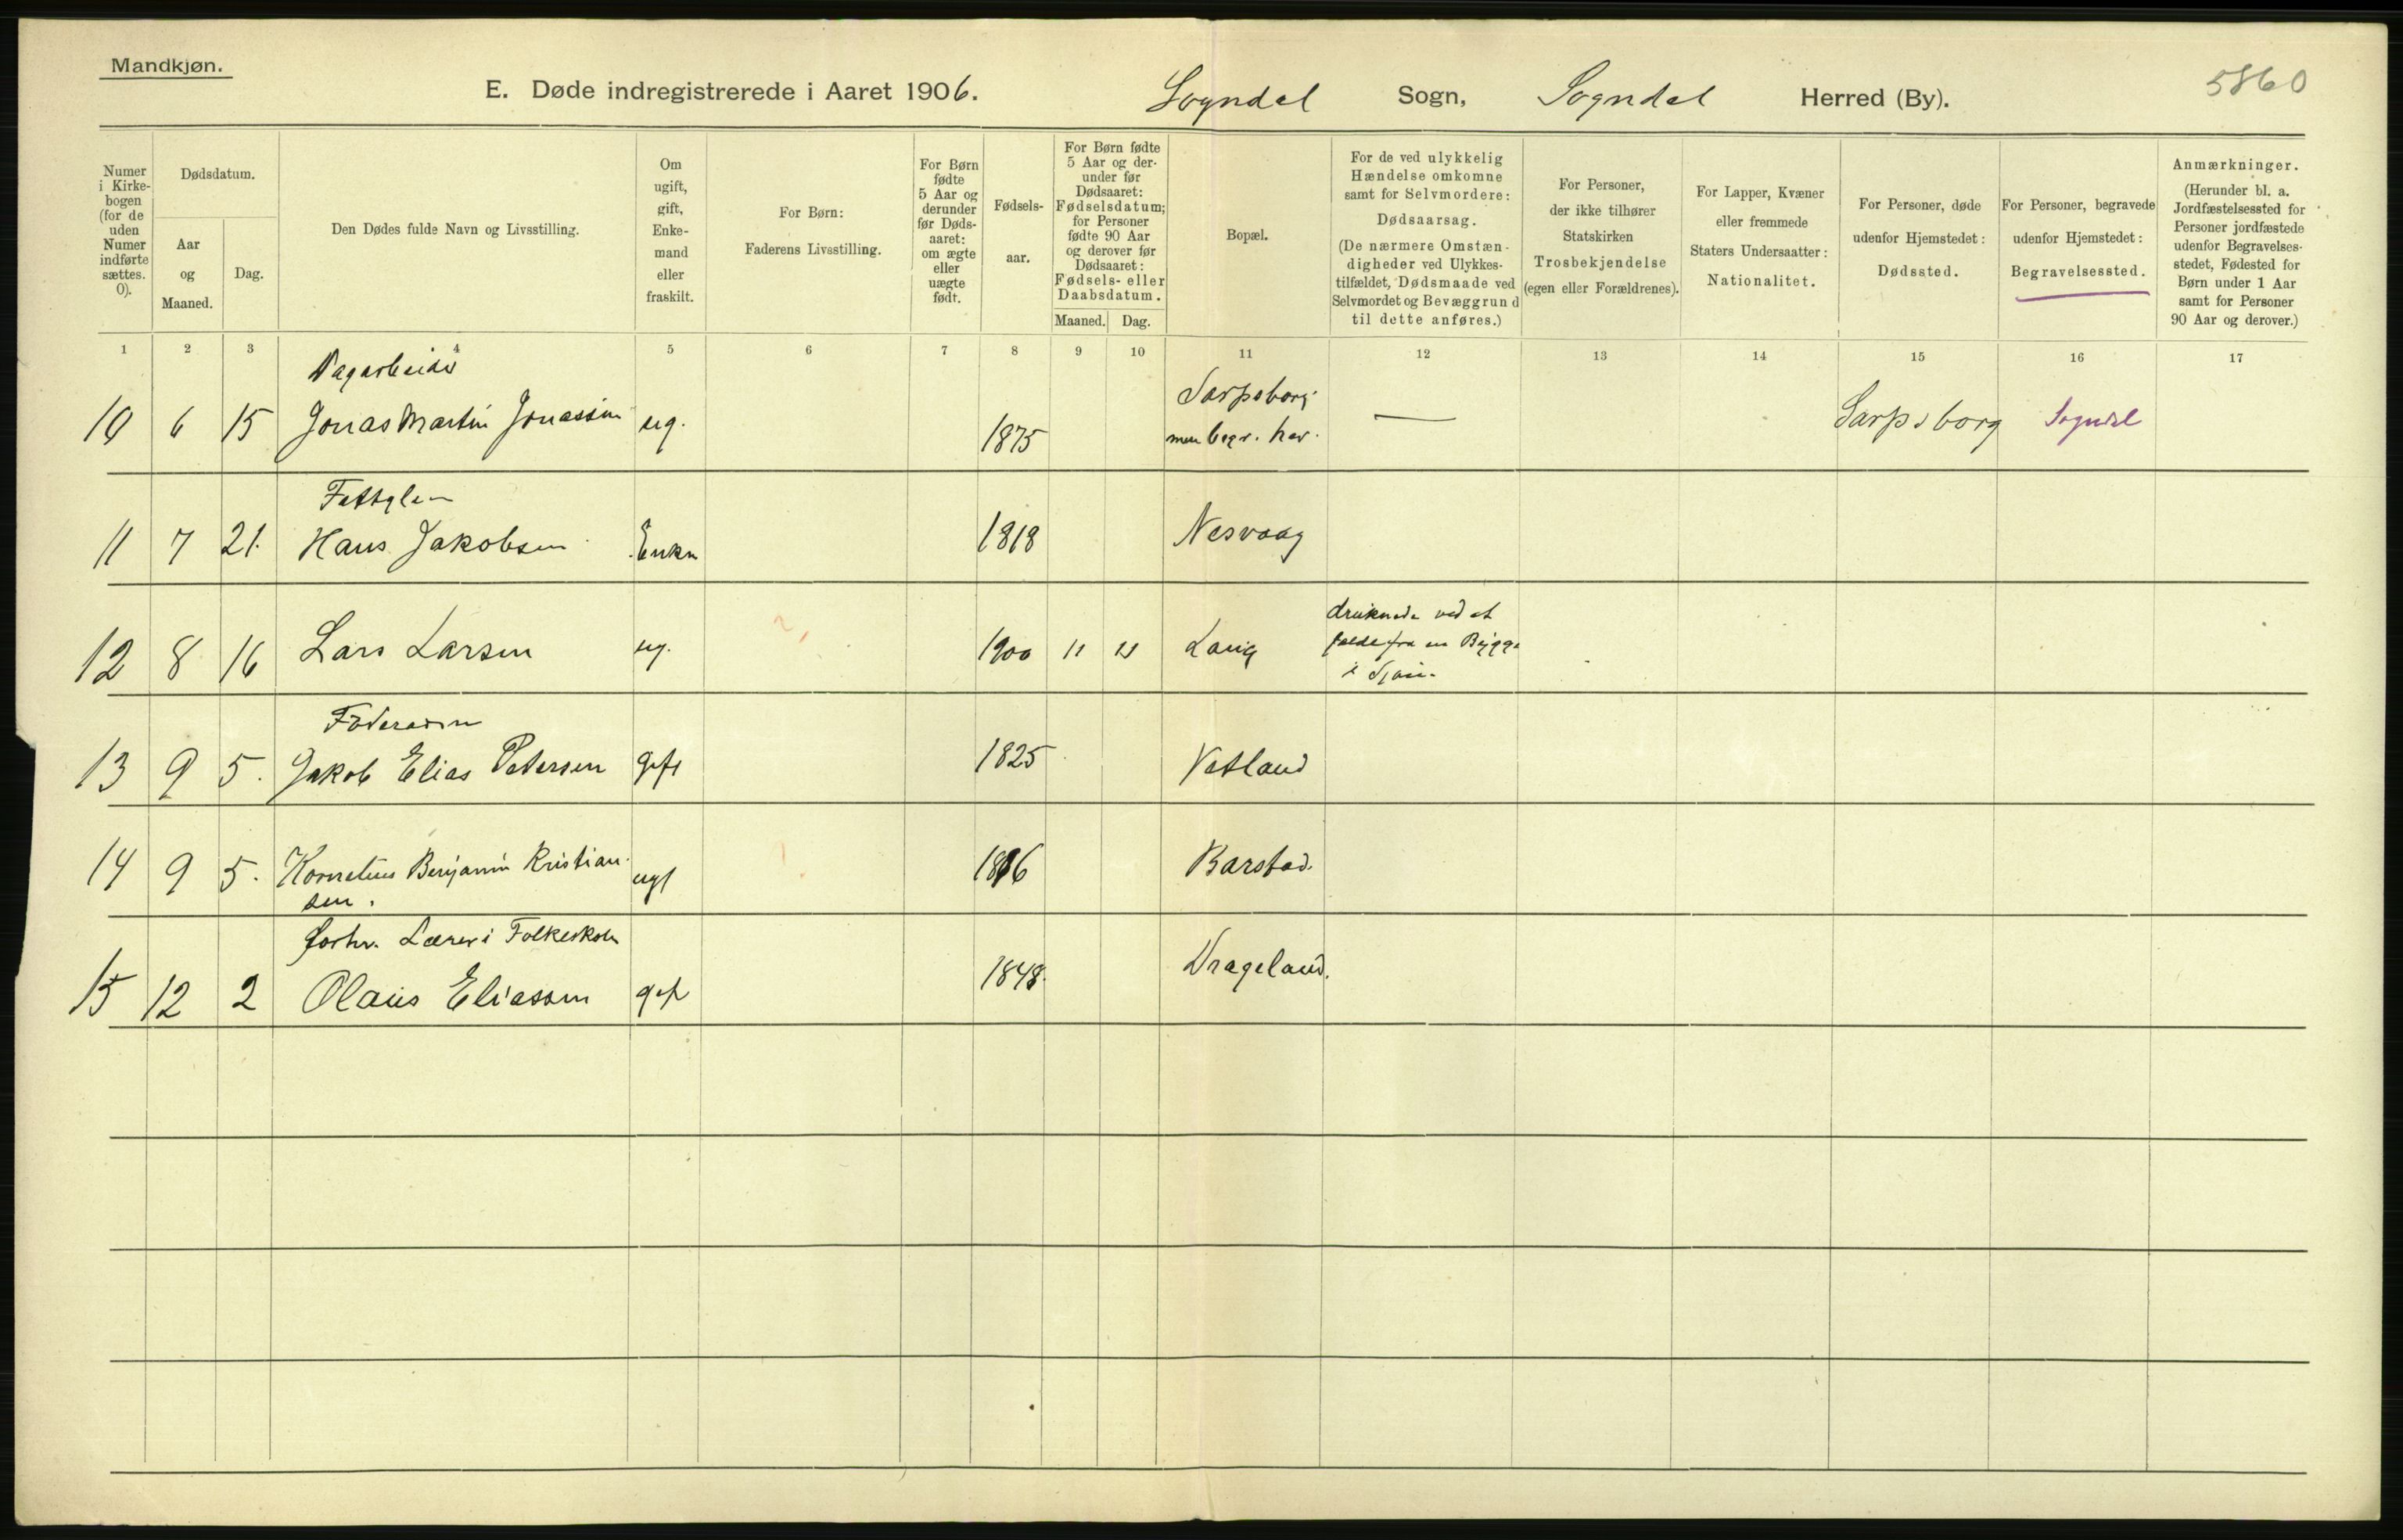 Mandkjøn.
E. Døde indregistrerede i Aaret 1906. Sogndal Sogn, Sogndal Herred (By).
5860
Numer i Kirke- bogen (for de uden Numer indførte sættes. 0).
Dødsdatum.
Aar og Maaned.
Dag.
Den Dødes fulde Navn og Livsstilling.
Om ugift, gift, Enke- mand eller fraskilt.
For Børn: Faderens Livsstilling.
For Børn fødte 5 Aar og derunder før Døds- aaret: om ægte eller uægte født.
Fødsels- aar.
For Børn fødte 5 Aar og der- under før Dødsaaret: Fødselsdatum; for Personer fødte 90 Aar og derover før Dødsaaret: Fødsels- eller Daabsdatum.
Maaned. Dag.
Bopæl.
For de ved ulykkelig Hændelse omkomne samt for Selvmordere: Dødsaarsag. (De nærmere Omstæn- digheder ved Ulykkes- tilfældet, Dødsmaade ved Selvmordet og Bevæggrund til dette anføres.)
For Personer, der ikke tilhører Statskirken Trosbekjendelse (egen eller Forældrenes).
For Lapper, Kvæner eller fremmede Staters Undersaatter: Nationalitet.
For Personer, døde udenfor Hjemstedet: Dødssted.
For Personer, begravede udenfor Hjemstedet: Begravelsessted.
Anmærkninger. (Herunder bl. a. Jordfæstelsessted for Personer jordfæstede udenfor Begravelses- stedet, Fødested for Børn under 1 Aar samt for Personer 90 Aar og derover.)
1 2 3 4 5 6 7 8 9 10 11 12 13 14 15 16 17
Dagarbeider
Sarpsborg
10 6 15 Jonas Martin Jonassen ug. 1875 men begr. her. — Sarpsborg Sogndal
Fattiglem
11 7 21. Hans Jakobsen Enkm 1818 Nesvaag
druknede ved at
12 8 16 Lars Larsen ug. 1900 11 falde fra en Brygge
i Sjøen.
Føderaadm
13 9 5. Jakob Elias Petersen gift 1825 Vatland
14 9 5. Kornelius Benjamin Kristian- ugt Barstad.
sen.
forhv. Lærer i Folkeskolen
15 12 2 Olaus Eliassen gift 1848. Drageland.